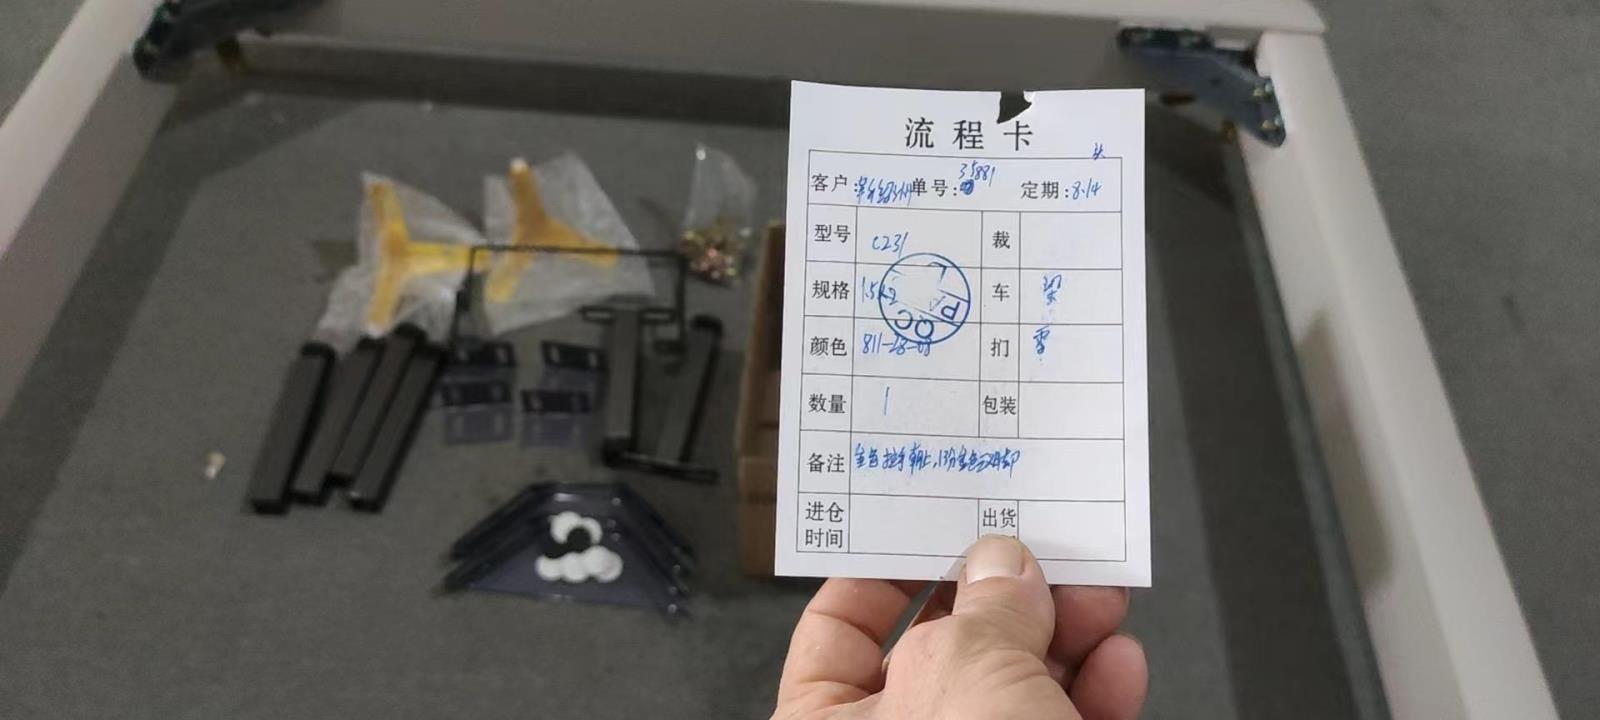 流程卡
头
客户: 单号: 35881 定期: 8.14
型号 C231 裁
规格 车 梁
颜色 811-28-08 扪 雪
数量 1 包装
备注
进仓时间 出货
QC P